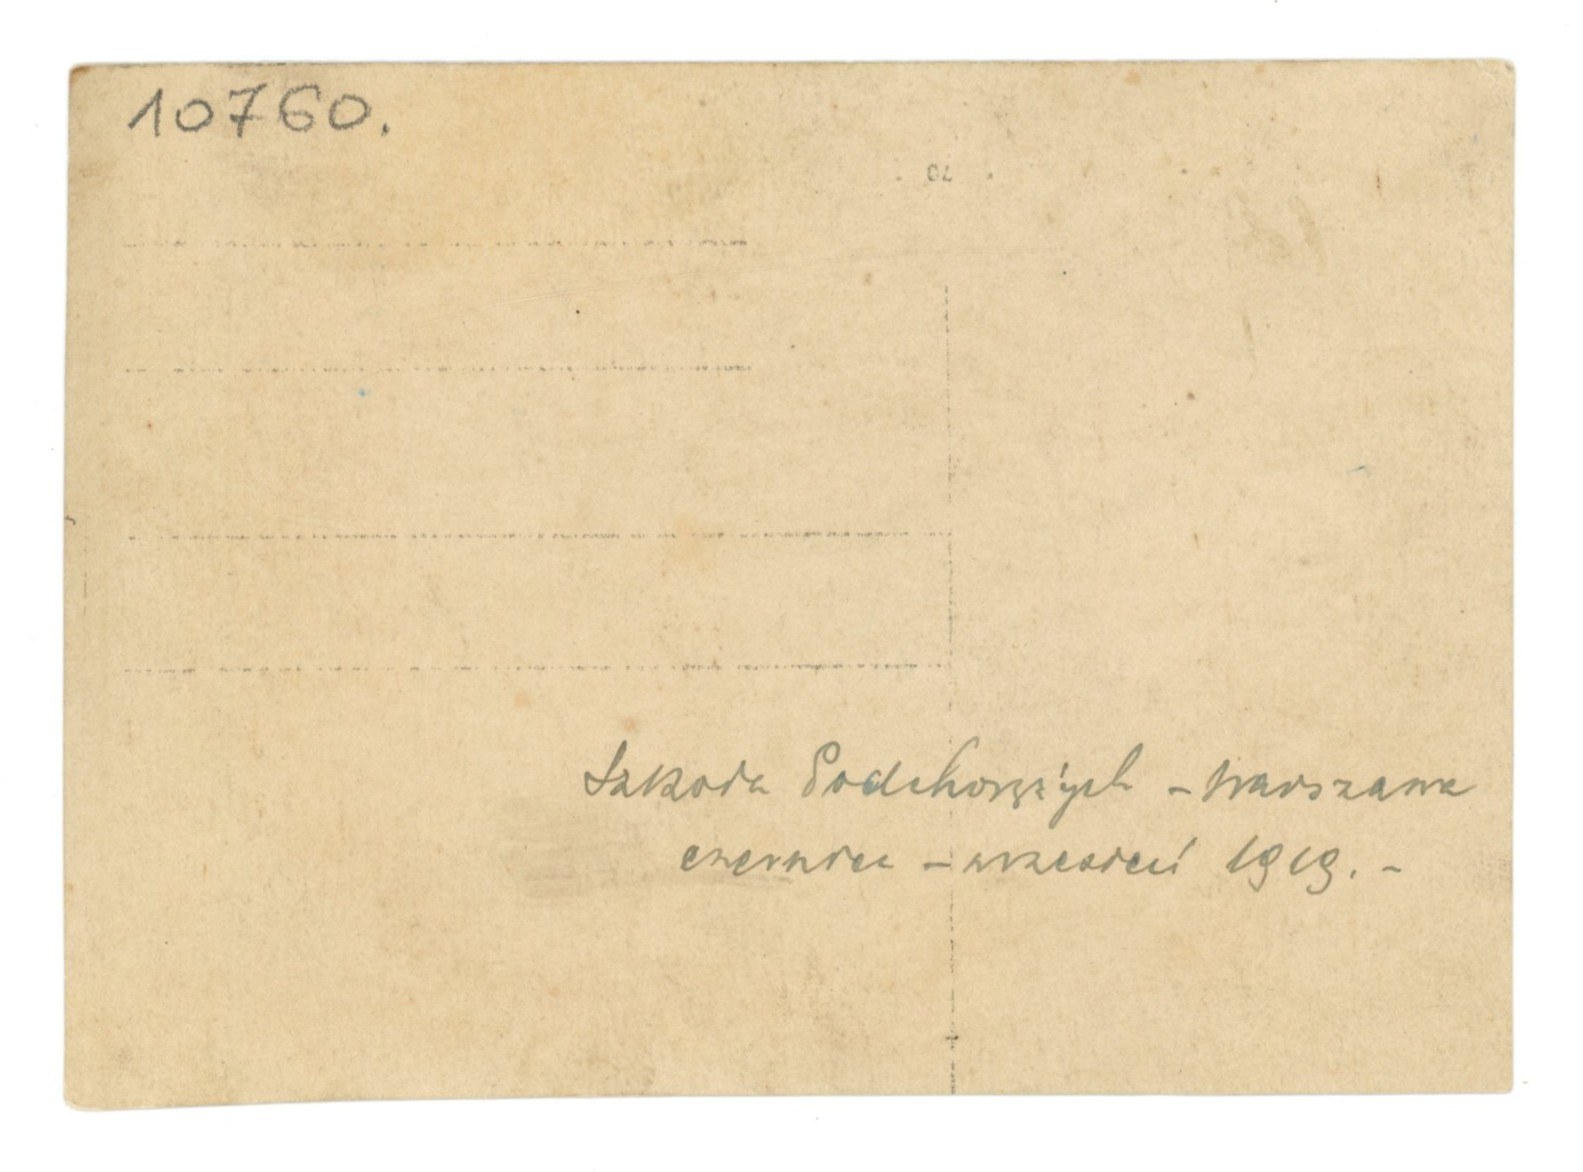 10760.
70
Szkoła Podchorążych - Warszawa
czerwiec - wrzesień 1919. -